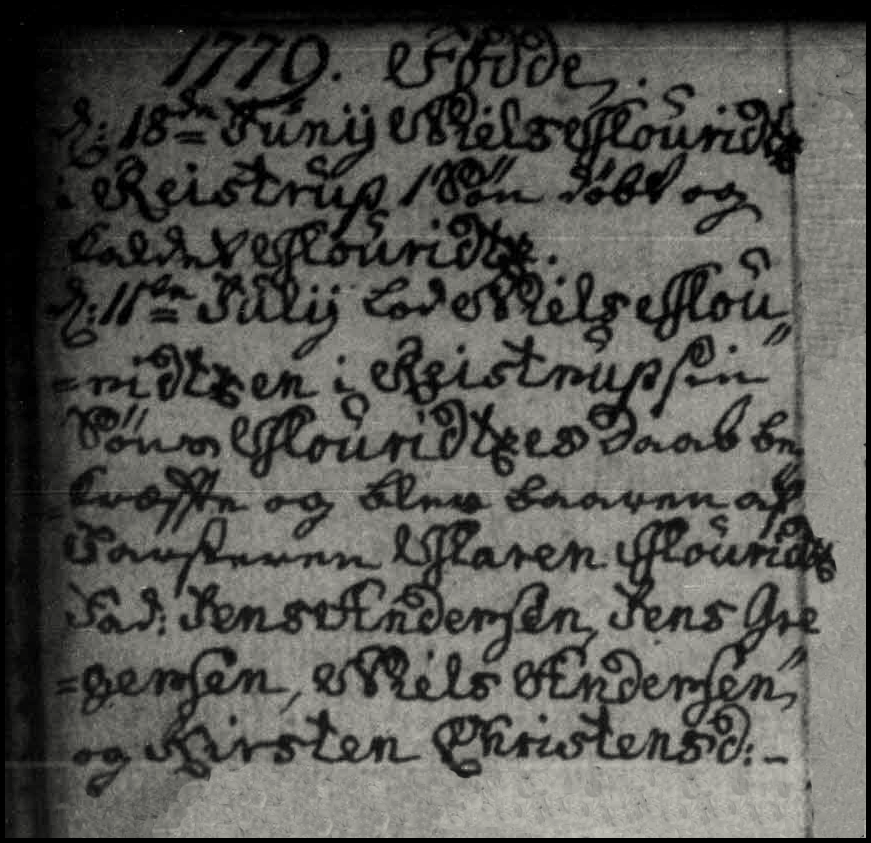 1779. Födde,
d: 18de Junij Niels Louridtz
i Reistrup 1 Sön döbt og
kaldet Louridtz.
d: 11te Julij lod Niels Lou
=ridtzen i Reistrup sin
Söns Louridtzes Daab be
kræfte og blev baaren af
Maren Louridtz
Fad: Jens Andersen, Jens Gre
=gersen, Niels Andersen,
og Kirsten Christensd: -